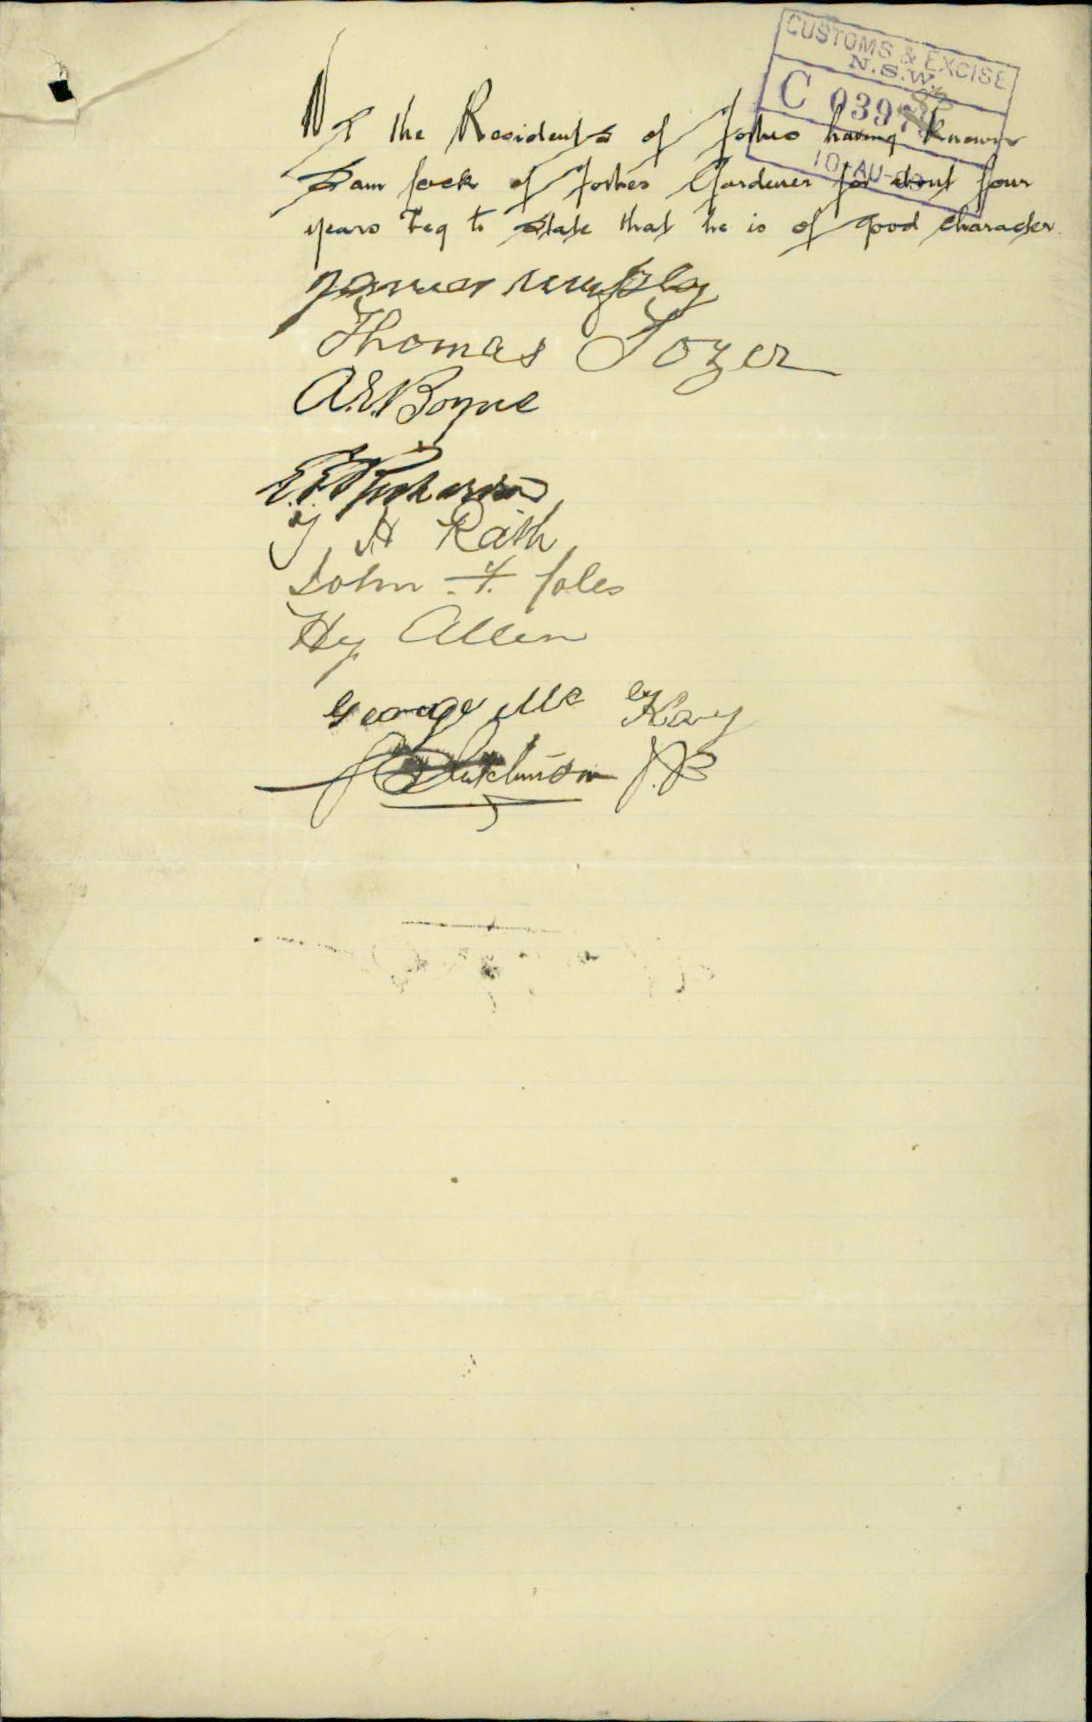 CUSTOMS & EXCISE
N.S.W.
C 0397
10 AU
We the Residents of Forbes having known
Sam Jock of Forbes Gardener for about four
years beg to state that he is of good character
James
Thomas Tozer
A.E. Boyne
E.E. Richardson
H Rath
John F. Coles
Hy Allen
George Mc Kay
Hutchinson J.P.